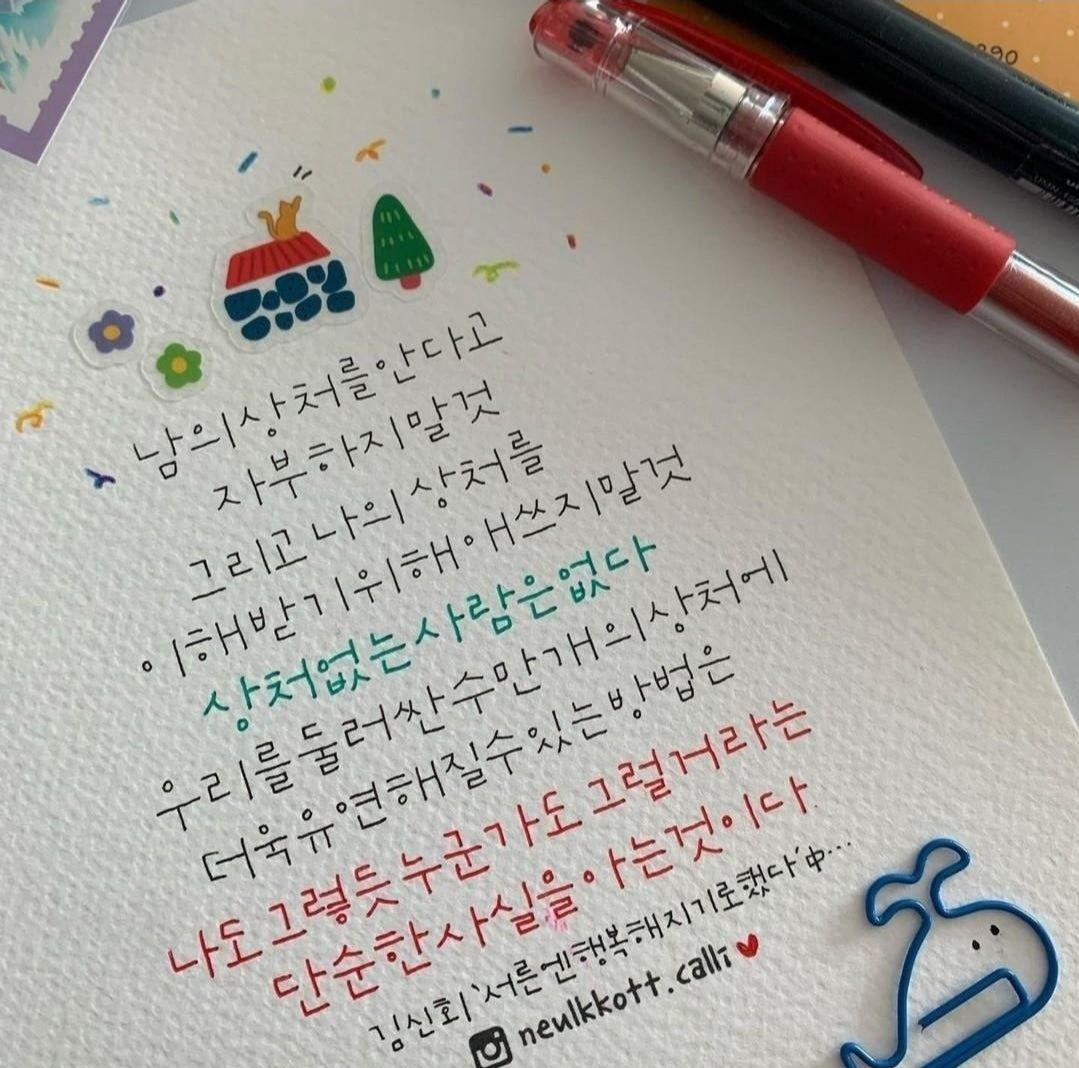 290
남의 상처를 안다고
자부하지 말 것
그리고 나의 상처를
이해받기 위해 애쓰지 말 것
상처없는 사람은 없다
우리를 둘러싼 수만개의 상처에
더욱 유연해질 수 있는 방법은
나도 그렇듯 누군가도 그럴거라는
단순한 사실을 아는 것이다.
김신회 '서른엔 행복해지기로 했다' 中…
neulkkott.calli